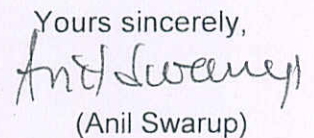 Yours sincerely,
Anil Swarup
(Anil Swarup)